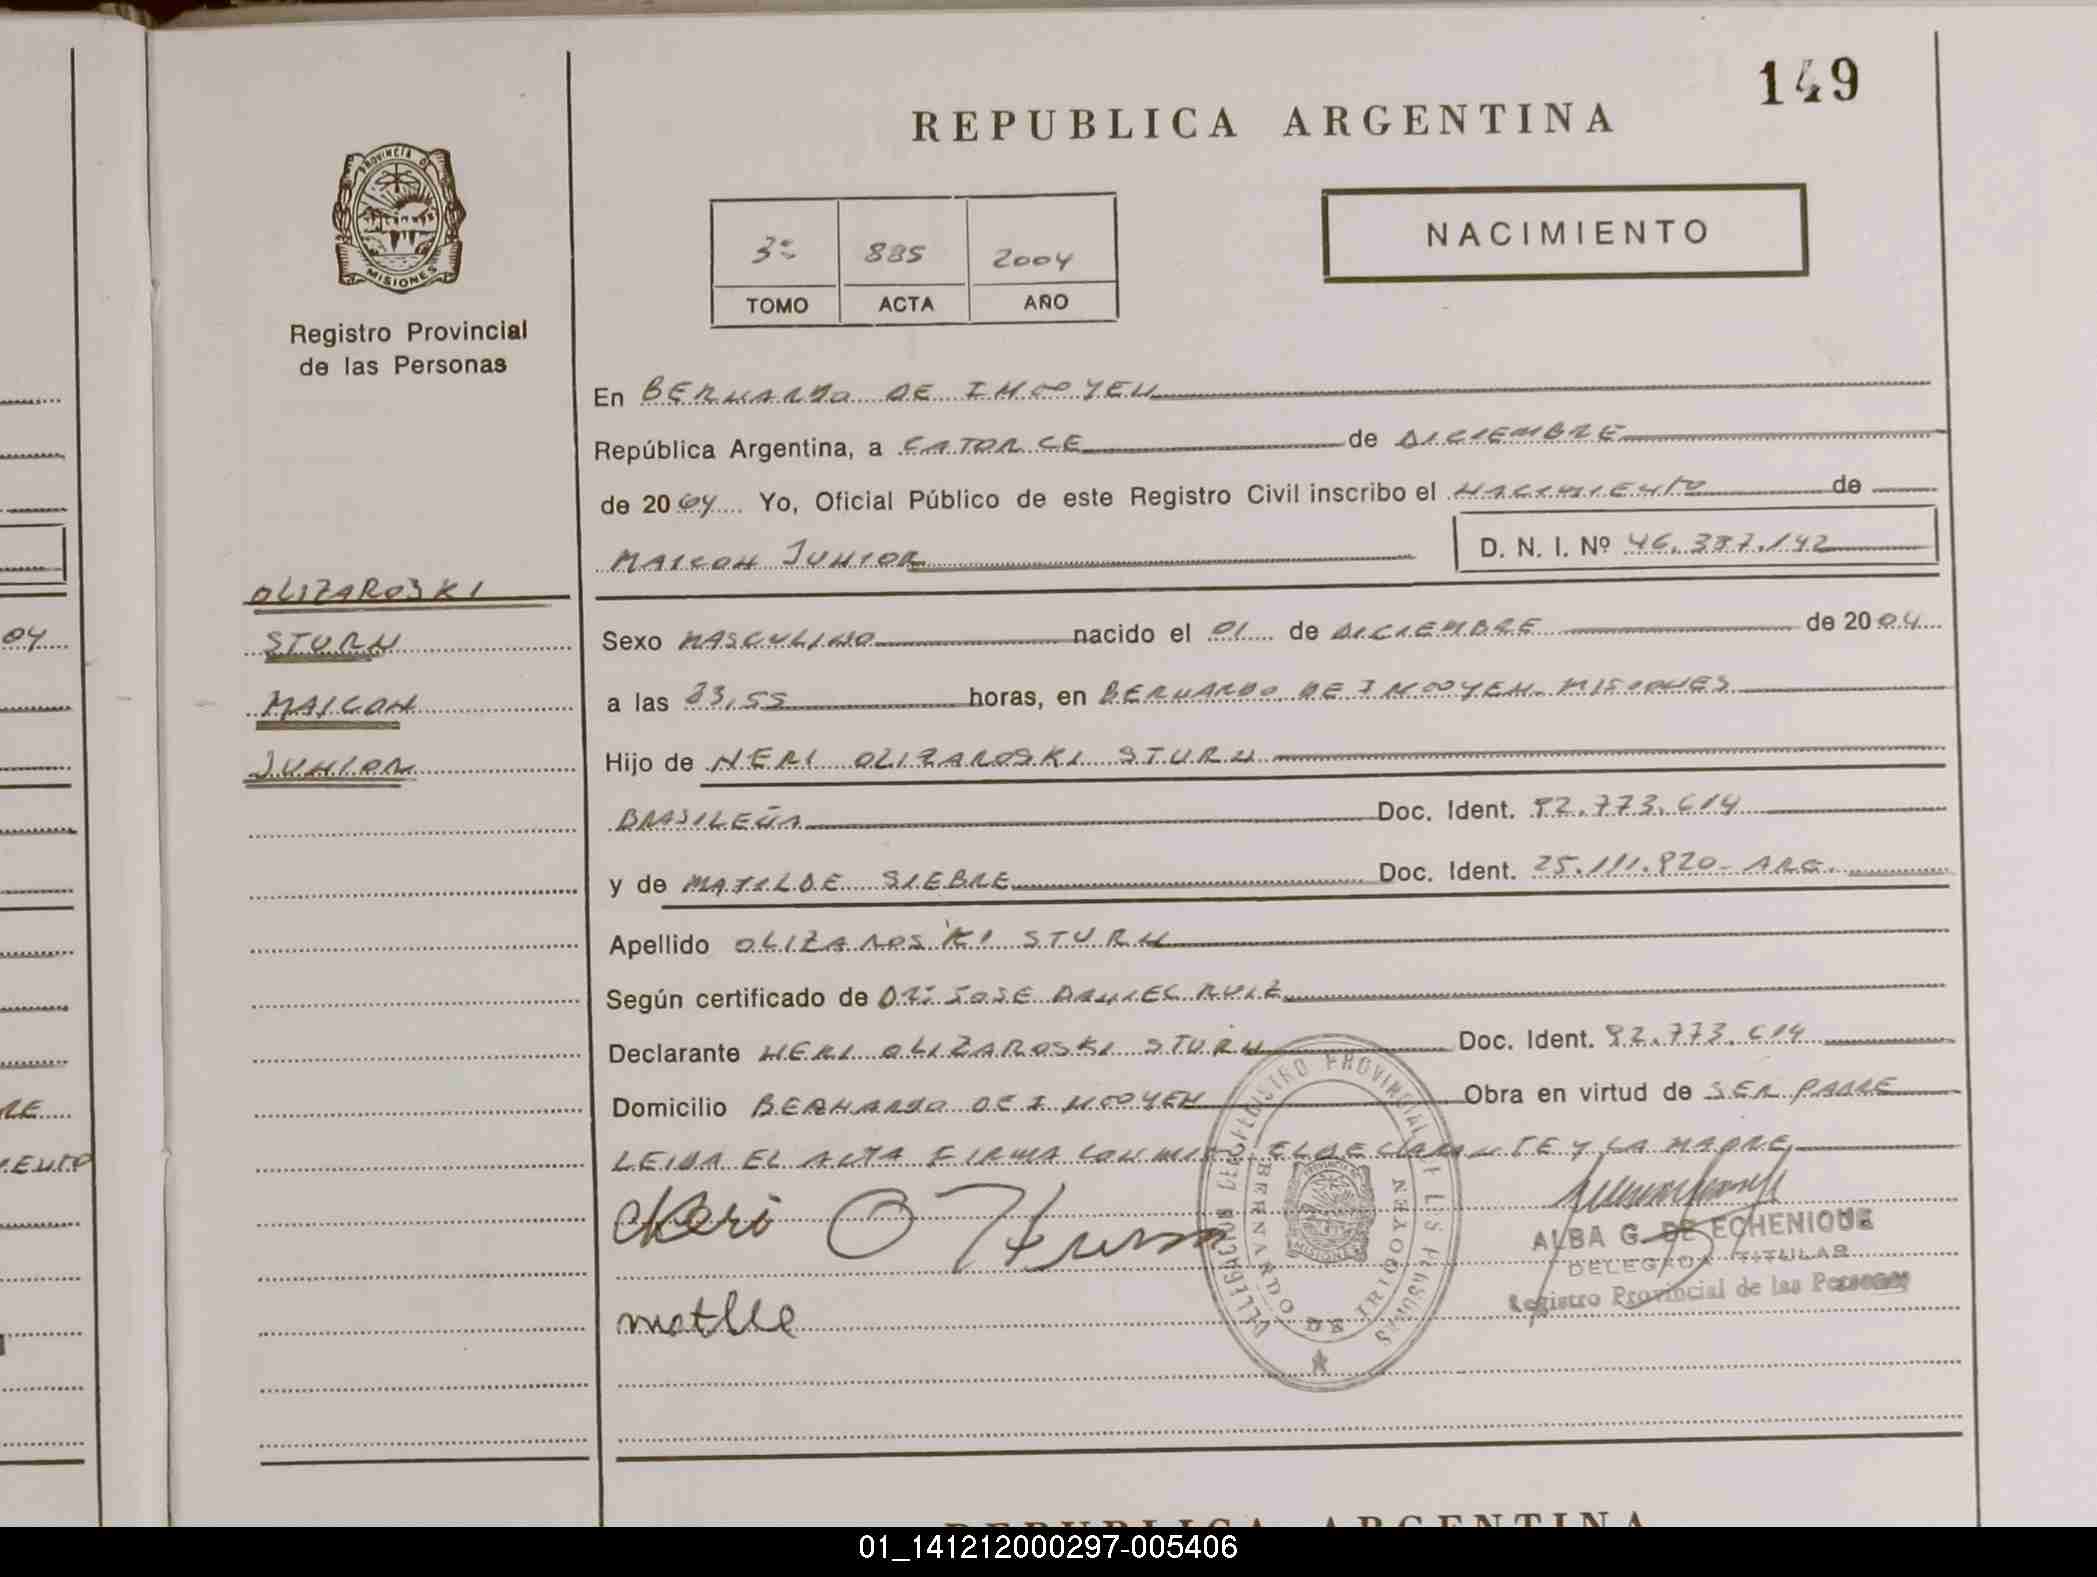 149
REPUBLICA ARGENTINA
NACIMIENTO
3º 885 2004
TOMO ACTA AÑO
PROVINCIA DE
MISIONES
Registro Provincial
de las Personas
En BERNARDO DE IRIGOYEN
República Argentina, a CATORCE de DICIEMBRE
de 2004 Yo, Oficial Público de este Registro Civil inscribo el NACIMIENTO de
MAICON JUNIOR D. N. I. Nº 46.387.142
OLIZAROSKI
STURN
MAICON
JUNIOR
Sexo MASCULINO nacido el 01 de DICIEMBRE de 2004
a las 23,55 horas, en BERNARDO DE IRIGOYEN. MISIONES
Hijo de NERI OLIZAROSKI STURN
BRASILEÑA Doc. Ident. 92.773.614
y de MATILDE SIEBRE Doc. Ident. 25.111.920- ARG.
Apellido OLIZAROSKI STURN
Según certificado de DR: JOSE DANIEL RUIZ
Declarante NERI OLIZAROSKI STURN Doc. Ident. 92.773.614
Domicilio BERNARDO DE IRIGOYEN Obra en virtud de SER PADRE
LEIDA EL ACTA FIRMA CONMIGO EL DECLARANTE Y LA MADRE
Neri O
matlle
DELEGACION DEL REGISTRO PROVINCIAL DE LAS PERSONAS
BERNARDO DE IRIGOYEN
MISIONES
ALBA G. DE ECHENIQUE
DELEGADA TITULAR
Registro Provincial de las Personas
REPUBLICA ARGENTINA
01_141212000297-005406